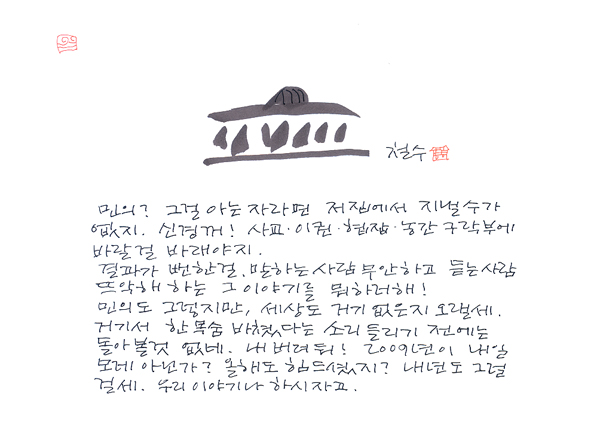 철수
민의? 그걸 아는 자라면 저 집에서 지낼 수가
없지. 신경꺼! 사교·이권·협잡·농간 구락부에
바랄걸 바래야지.
결과가 뻔한걸. 말하는 사람 무안하고 듣는 사람
뜨악해 하는 그 이야기를 뭐하러해!
민의도 그렇지만, 세상도 거기 없은지 오랠세.
거기서 한 목숨 바쳤다는 소리 들리기 전에는
돌아볼것 없네. 내버려 둬! 2009년이 내일
모레 아닌가? 올해도 힘드셨지? 내년도 그럴
걸세. 우리 이야기나 하시자고.